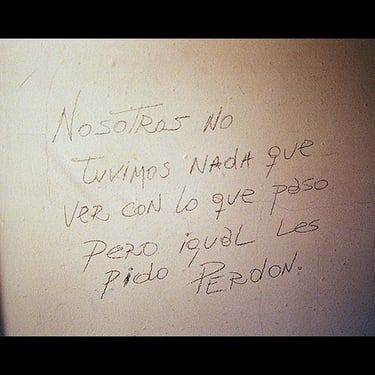 Nosotros no
tuvimos nada que
ver con lo que paso
pero igual les
pido perdon.